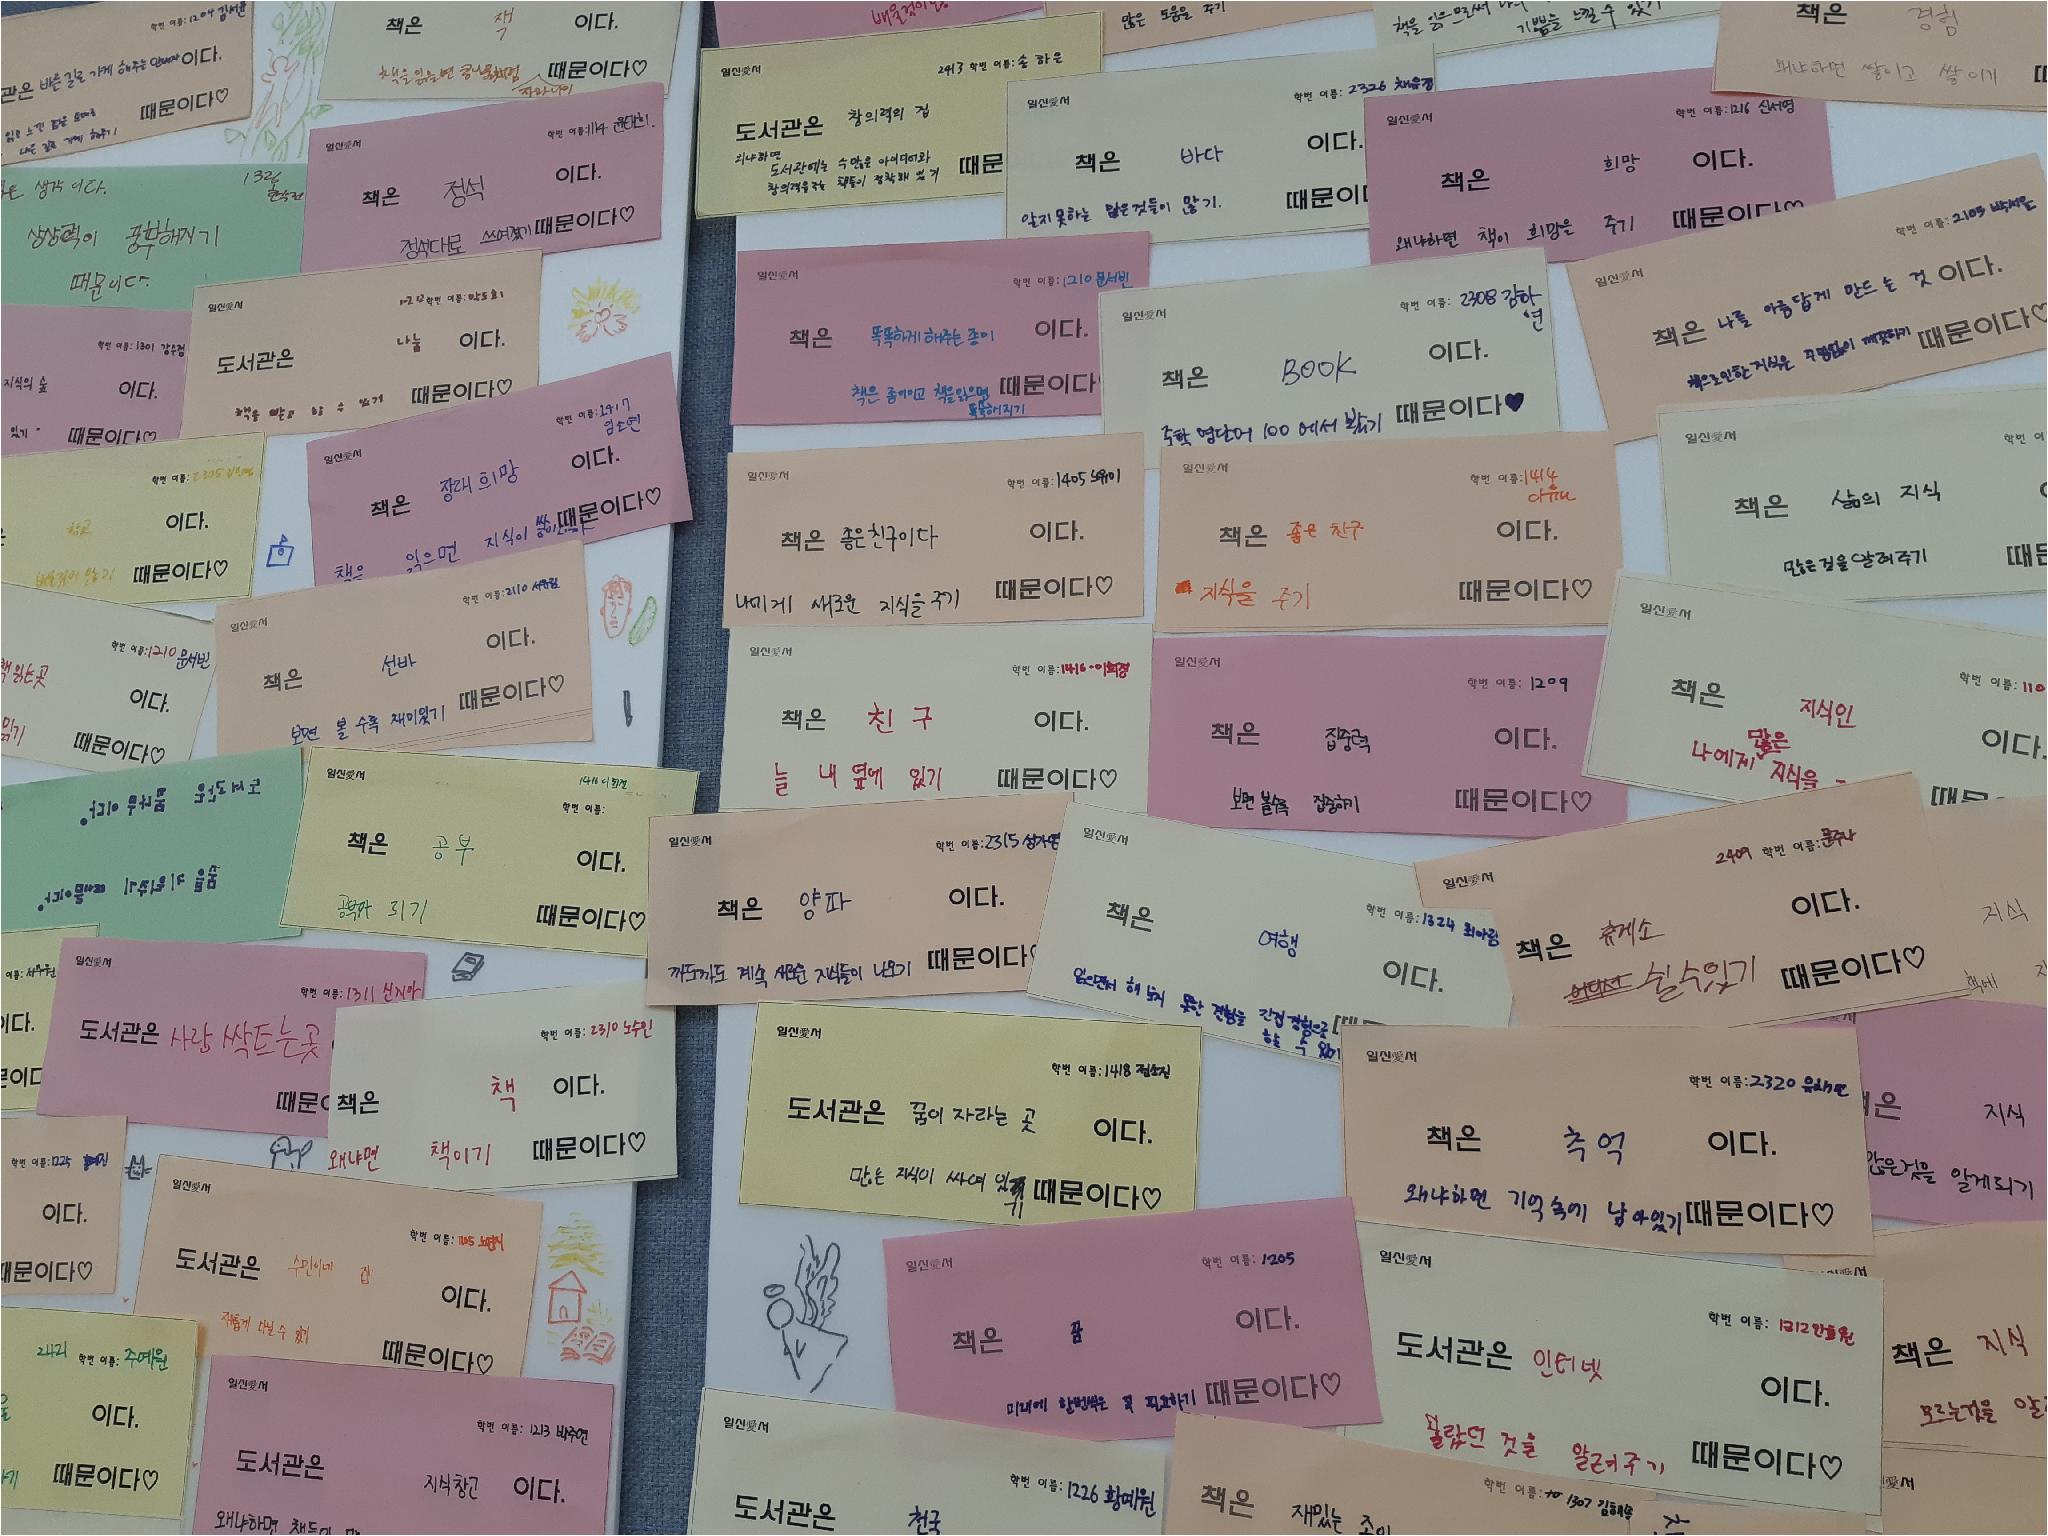 이다.
때문이다♡
책은 잭 이다.
책을 읽으면 콩나물처럼
자라나기
때문이다♡
많은 도움을 주기
책은 경험
왜냐하면 쌀이고 쌀이기
1326
생각 이다.
상상력이 풍부해지기
때문이다.
일신愛서
학번 이름:
책은 정석 이다.
정석대로 쓰여졌기 때문이다♡
일신愛서
2413 학번 이름: 송하은
도서관은 창의력의 집
왜냐하면
도서관에는 수많은 아이디어와
창의력을 주는 책들이 정착해 있기
때문
일신愛서
학번 이름: 2326
책은 바다 이다.
알지 못하는 많은것들이 많기. 때문이다
일신愛서
학번 이름: 1216 신서영
책은 희망 이다.
왜냐하면 책이 희망을 주기 때문이다♡
일신愛서
학번 이름: 2105
책은 나를 아름답게 만드는 것 이다.
때문이다♡
일신愛서
학번 이름:
도서관은 나눔 이다.
때문이다♡
학번 이름: 1301 강수정
지식의 숲 이다.
있기 때문이다♡
일신愛서
학번 이름: 1210 문서빈
책은 똑똑하게 해주는 종이 이다.
책은 종이이고 책을읽으면
똑똑해지기
때문이다
일신愛서
학번 이름: 2308 강하연
책은 BOOK 이다.
중학 영단어 100 에서 봤기 때문이다♥
일신愛서
학번 이름: 1417 임소연
책은 장래희망 이다.
책은 읽으면 지식이 때문이다♡
학번 이름: 2305
학교 이다.
때문이다♡
일신愛서
학번 이름: 1405
책은 좋은친구이다 이다.
나에게 새로운 지식을 주기 때문이다♡
일신愛서
학번 이름: 1414
책은 좋은 친구 이다.
지식을 주기 때문이다♡
일신愛서
책은 삶의 지식
많은것을 알려주기
일신愛서
학번 이름: 2110
책은 선바 이다.
보면 볼 수록 재미있기 때문이다♡
학번 이름: 1210 문서빈
이다.
읽기 때문이다♡
일신愛서
학번 이름: 1416 이희정
책은 친구 이다.
늘 내 옆에 있기 때문이다♡
일신愛서
학번 이름: 1209
책은 집중력 이다.
보면 볼수록 집중하기 때문이다♡
일신愛서
학번 이름: 110
책은 지식인 이다.
나에게 많은 지식을
도서관은
꿈나무 이다.
꿈을 키워주기 때문이다.
일신愛서
학번 이름:
책은 공부 이다.
공부가 되기 때문이다♡
일신愛서
학번 이름: 2315
책은 양파 이다.
까도까도 계속 새로운 지식들이 나오기 때문이다
일신愛서
학번 이름: 1324 최아림
책은 여행 이다.
읽으면서 해 보지 못한 경험을 간접경험으로
할 수 있기
일신愛서
2409 학번 이름: 문주사
책은 휴게소 이다.
쉴수있기 때문이다♡
지식
책에
일신愛서
학번 이름: 1311 신지아
도서관은 사랑 싹트는곳
때문
학번 이름: 2310 노수인
책은 책 이다.
왜냐면 책이기 때문이다♡
일신愛서
학번 이름: 1418
도서관은 꿈이 자라는 곳 이다.
많은 지식이 싸여 있기 때문이다♡
일신愛서
학번 이름: 2320
책은 추억 이다.
왜냐하면 기억속에 남아있기 때문이다♡
지식
많은것을 알게되기
학번 이름: 1225
이다.
때문이다♡
일신愛서
학번 이름:
도서관은 수민이네 집 이다.
때문이다♡
일신愛서
학번 이름: 1205
책은 꿈 이다.
미래에 한번쯤은 꼭 필요하기 때문이다♡
일신愛서
학번 이름: 1312
도서관은 인터넷 이다.
몰랐던 것을 알려주기 때문이다♡
책은 지식
모르는것을
2421 학번 이름: 주예원
이다.
때문이다♡
일신愛서
학번 이름: 1213 박주연
도서관은 지식창고 이다.
왜냐하면
일신愛서
학번 이름: 1226 황예원
도서관은 천국
학번 이름: 1307
책은 재밌는 종이